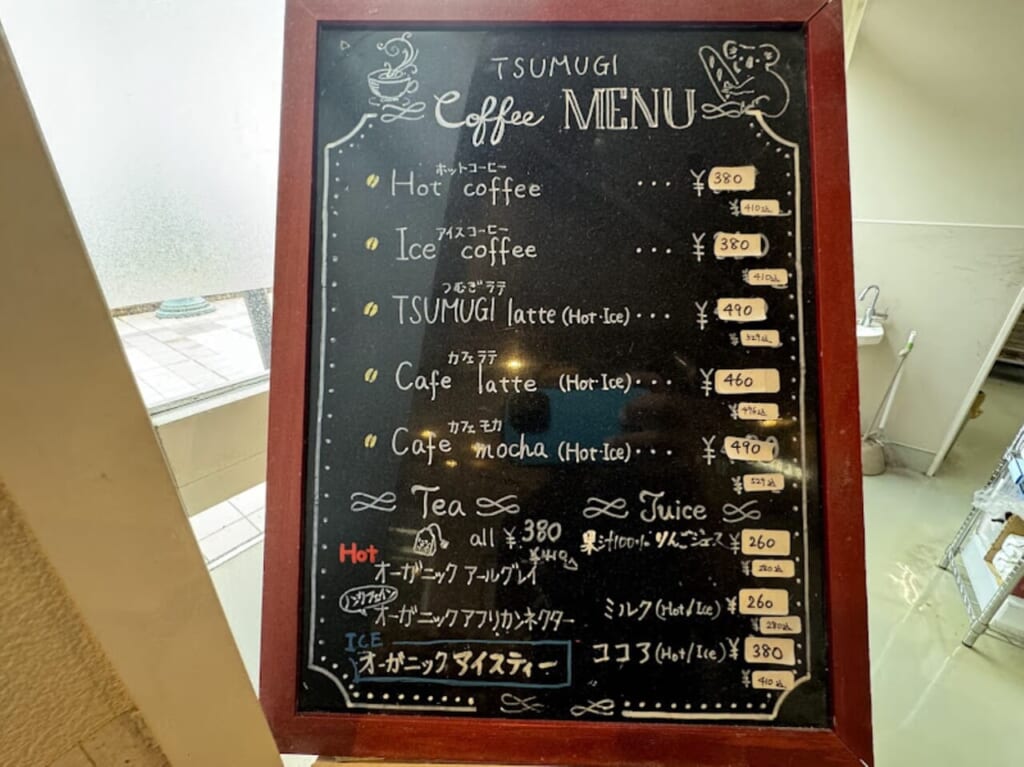 TSUMUGI
Coffee MENU
ホットコーヒー
Hot coffee ... ¥380
¥410込
アイスコーヒー
Ice coffee ... ¥380
¥410込
つむぎラテ
TSUMUGI latte (Hot・Ice)... ¥490
¥529込
カフェラテ
Cafe latte (Hot・Ice)... ¥460
¥496込
カフェモカ
Cafe mocha (Hot・Ice)... ¥490
¥529込
Tea
all ¥380
¥410込
Hot
オーガニック アールグレイ
ノンカフェイン
オーガニックアフリカンネクター
ICE
オーガニックアイスティー
Juice
果汁100% りんごジュース ¥260
¥280込
ミルク(Hot/Ice) ¥260
¥280込
ココア(Hot/Ice) ¥380
¥410込